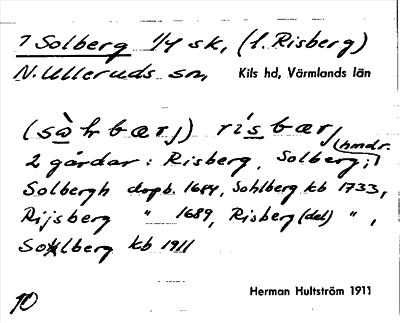 1 Solberg 1/4 sk, (l. Risberg)
N. Ulleruds sn, Kils hd, Värmlands län
(sà hrbærj) rísbær
hmdr.
2 gårdar: Risberg, Solberg;
Solbergh dopb. 1684, Sohlberg kb 1733,
Rijsberg " 1689, Risberg (del) ",
Solberg kb 1911
10 Herman Hultström 1911